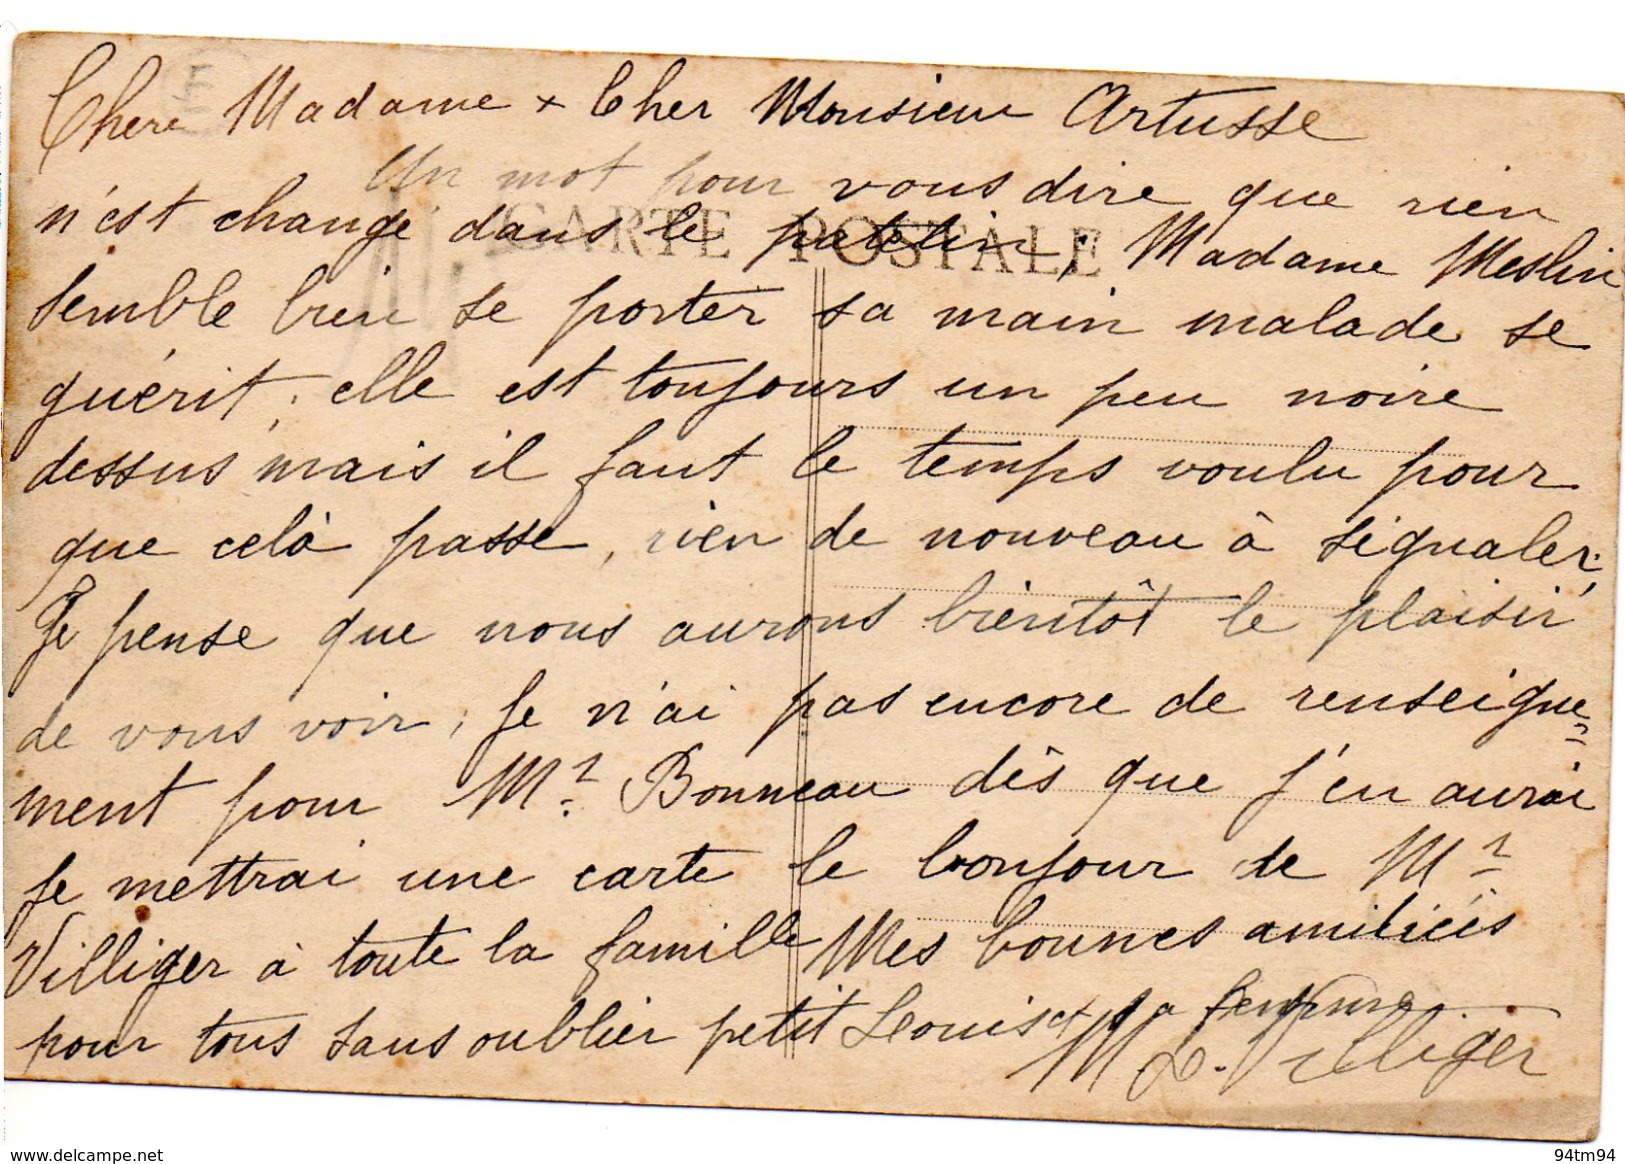 Chère Madame + Cher Monsieur Artusse
Un mot pour vous dire que rien
CARTE POSTALE
n'est changé dans le patelin ; Madame Meslin
semble bien se porter sa main malade se
guérit, elle est toujours un peu noire
dessus mais il faut le temps voulu pour
que celà passe, rien de nouveau à signaler.
Je pense que nous aurons bientôt le plaisir
de vous voir, Je n'ai pas encore de renseigne=
ment pour Mr. Bonneau dès que j'en aurai
je mettrai une carte le bonjour de Mr
Villiger à toute la famille Mes bonnes amitiées
pour tous sans oublier petit Léonis et sa
M L. Villiger
www.delcampe.net
94tm94